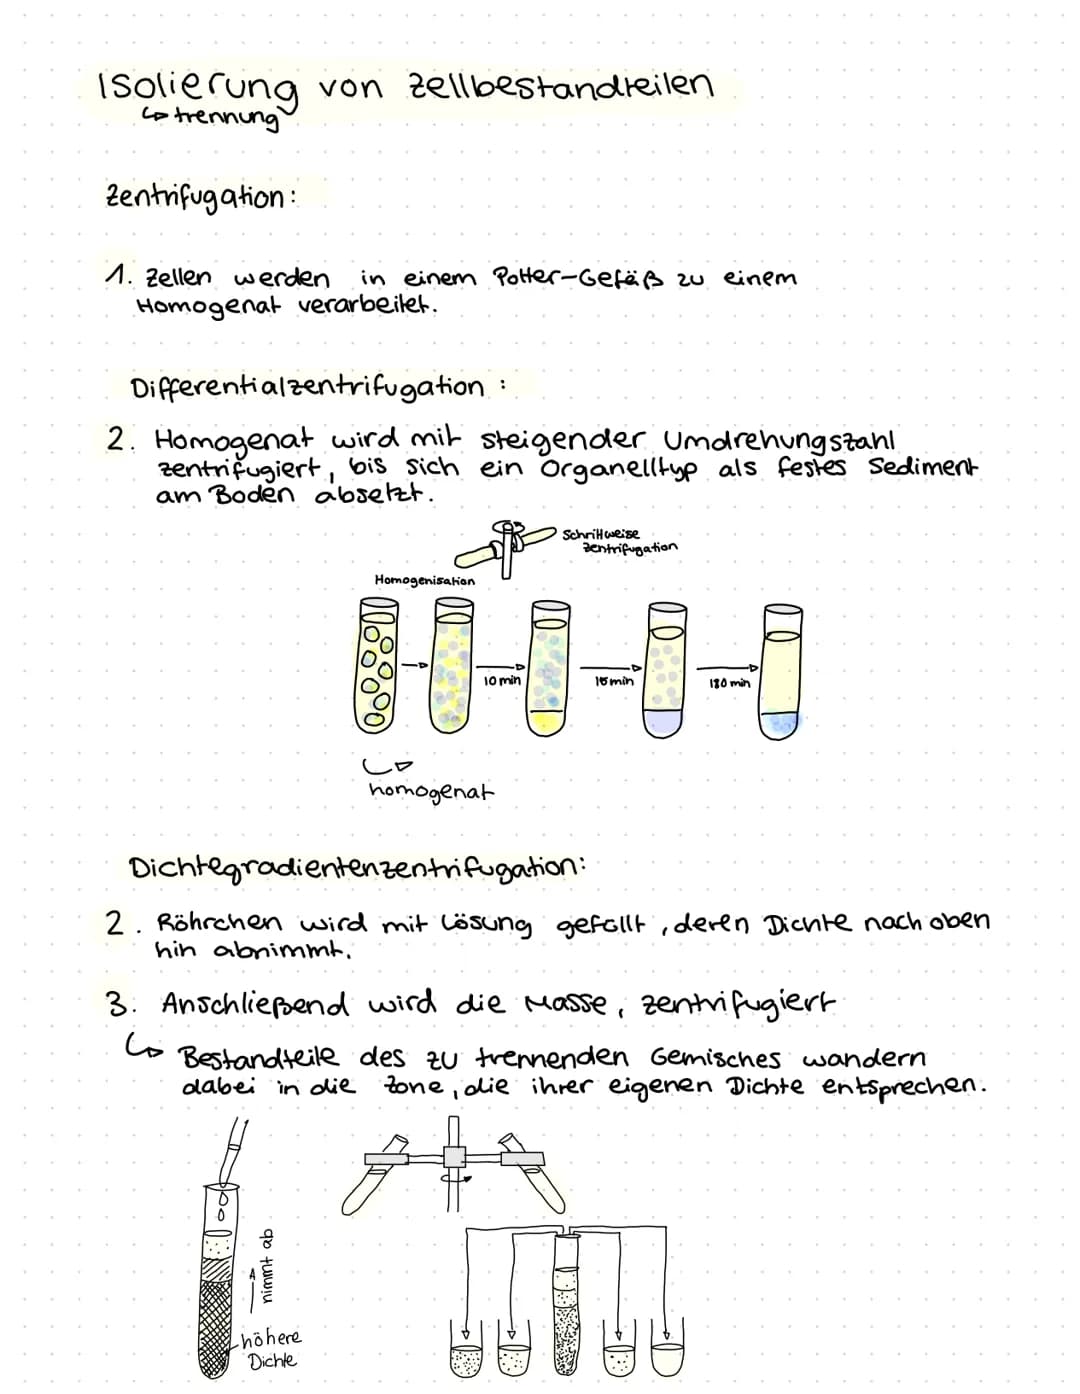 Isolierung von Zellbestandteilen
↳ trennung
Zentrifugation:
1. Zellen werden in einem Potter-Gefäß zu einem
Homogenat verarbeitet.
Differentialzentrifugation:
2. Homogenat wird mit steigender Umdrehungszahl
zentrifugiert, bis sich ein Organelltyp als festes Sediment
am Boden absetzt.
Schrittweise
Zentrifugation
Homogenisation
10 min
15 min
180 min
↳ homogenat
Dichtegradientenzentrifugation:
2. Röhrchen wird mit Lösung gefüllt, deren Dichte nach oben
hin abnimmt.
3. Anschließend wird die Masse, zentrifugiert
↳ Bestandteile des zu trennenden Gemisches wandern
dabei in die Zone, die ihrer eigenen Dichte entsprechen.
nimmt ab
höhere
Dichte